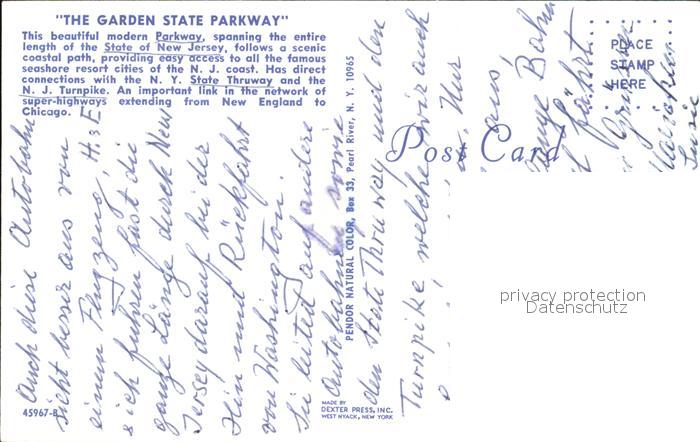 "THE GARDEN STATE PARKWAY"
This beautiful modern Parkway, spanning the entire
length of the State of New Jersey, follows a scenic
coastal path, providing easy access to all the famous
seashore resort cities of the N. J. coast. Has direct
connections with the N. Y. State Thruway and the
N. J. Turnpike. An important link in the network of
super-highways extending from New England to
Chicago.
PLACE
STAMP
HERE
Post Card
PENDOR NATURAL COLOR, Box 33, Pearl River, N. Y. 10965
Auch diese Autobahn
sieht besser aus von
einem Flugzeug, H&E
sich fuhren fast die
ganze Länge durch New
Jersey darauf bei der
Hin und Rückfahrt
von Washington.
Sie leitet auf andere
Autobahnen sowie
den State Thruway und den
Turnpike welche wir auch
Nur
aus,
lange Bahn
fährt
privacy protection
Datenschutz
45967-B
MADE BY
DEXTER PRESS, INC.
WEST NYACK, NEW YORK